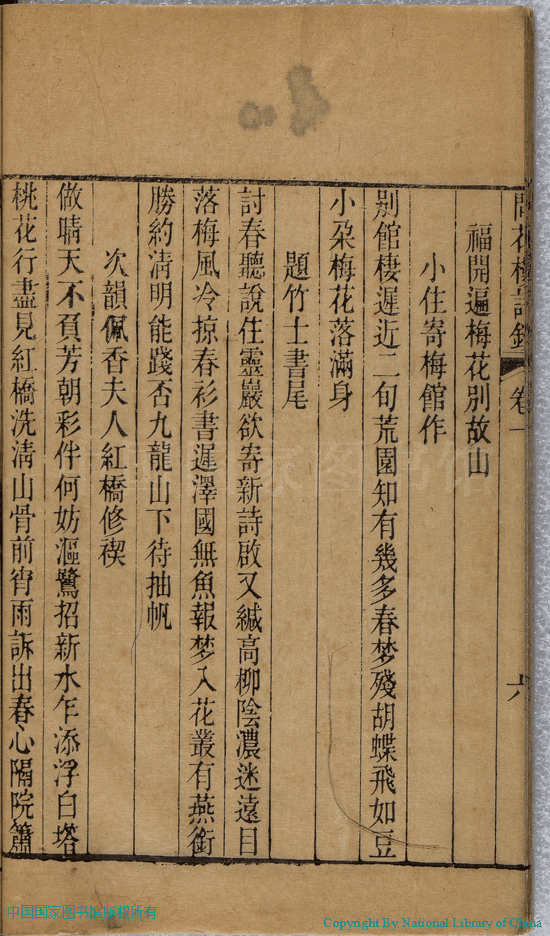 問花樓詩鈔 卷一 六
福開遍梅花別故山
小住寄梅館作
別館棲遲近二旬荒園知有幾多春梦殘胡蝶飛如豆
小朶梅花落滿身
題竹士書尾
討春聽說住靈巖欲寄新詩啟又緘高柳陰濃迷遠目
落梅風冷掠春衫書遲澤國無魚報梦入花叢有燕銜
勝約清明能踐否九龍山下待抽帆
次韻佩香夫人紅橋修禊
做晴天不負芳朝彩伴何妨漚鷺招新水乍添浮白塔
桃花行盡見紅橋洗清山骨前宵雨訴出春心隔院簫
中国国家图书馆版权所有
Copyright By National Library of China